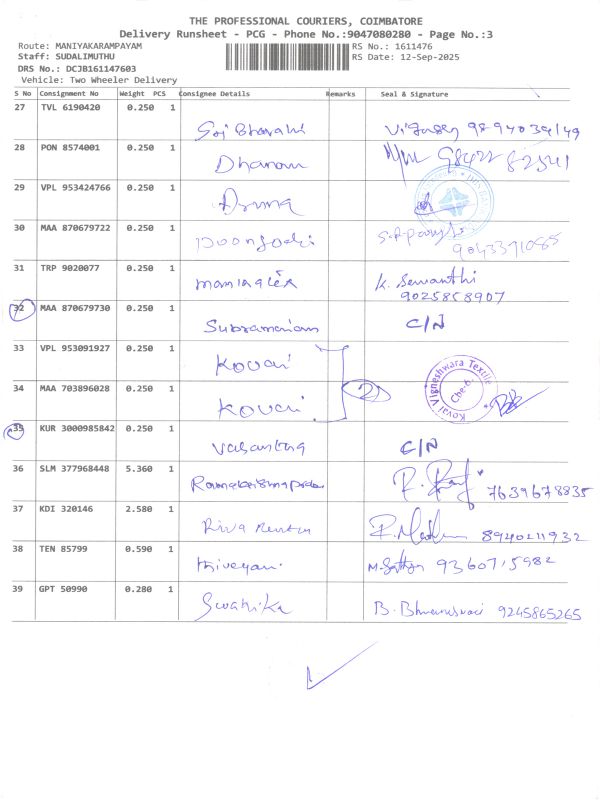 THE PROFESSIONAL COURIERS, COIMBATORE
Delivery Runsheet - PCG - Phone No.:9047080280 - Page No.:3
Route: MANIYAKARAMPAYAM RS No.: 1611476
Staff: SUDALIMUTHU RS Date: 12-Sep-2025
DRS No.: DCJB161147603
Vehicle: Two Wheeler Delivery
S No Consignment No Weight PCS Consignee Details Remarks Seal & Signature
27 TVL 6190420 0.250 1 Sri Bharathi 9894039149
28 PON 8574001 0.250 1 98422 82541
29 VPL 953424766 0.250 1
30 MAA 870679722 0.250 1 9043391085
31 TRP 9020077 0.250 1 K. Sewanthi
9025858907
32 MAA 870679730 0.250 1 Subramaniam C/N
33 VPL 953091927 0.250 1 Kovai
34 MAA 703896028 0.250 1 Kovai 2 Kovai Vigneshwara Textile
35 KUR 3000985842 0.250 1 Vasantha C/N
36 SLM 377968448 5.360 1 7639678835
37 KDI 320146 2.580 1 8940211932
38 TEN 85799 0.590 1 9360715982
39 GPT 50990 0.280 1 Swathika B. Bhuvaneswari 9245865265